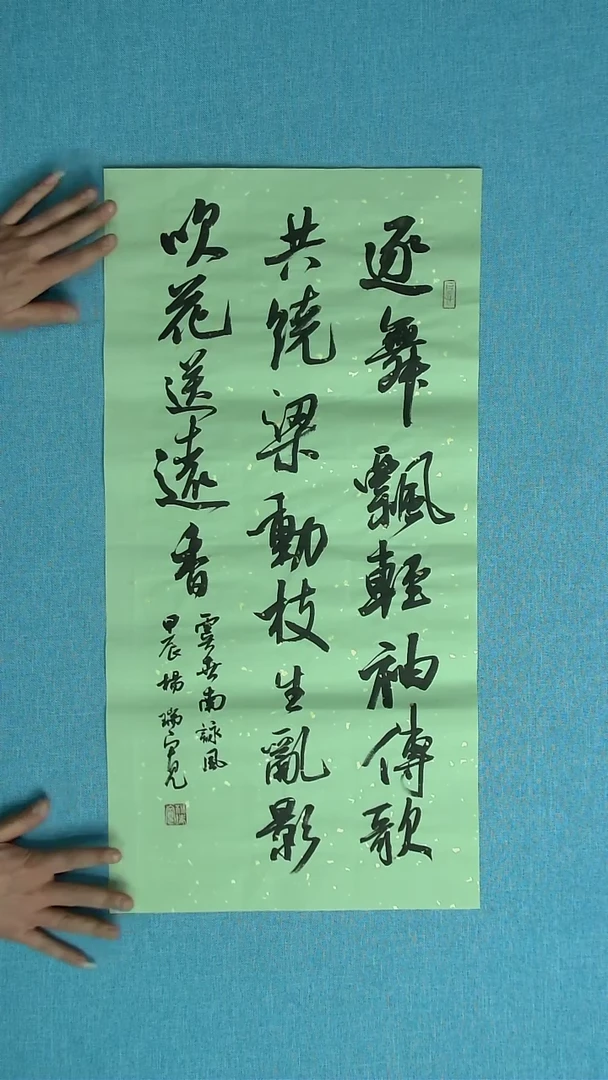 逐舞飄輕袖傳歌
共绕梁動枝生亂影
吹花送遠香
虞世南詠風
晨楊瑞